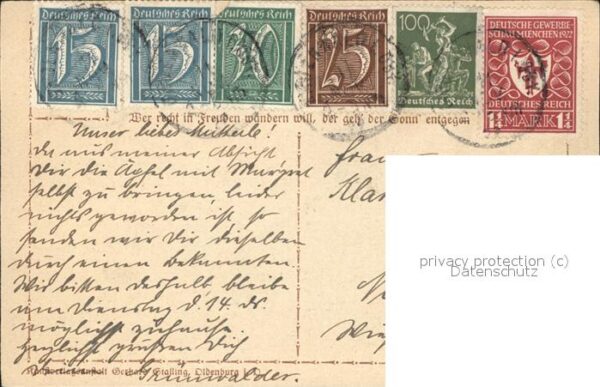 Deutsches Reich
15
Deutsches Reich
15
Deutsches Reich
20
Deutsches Reich
25
100
Deutsches Reich
DEUTSCHE GEWERBE-
SCHAU MUENCHEN 1922
DEUTSCHES REICH
1¼ MARK 1¼
Wer recht in Freuden wandern will, der geh' der Sonn' entgegen
Unser liebes Mutterle!
Da aus meiner Absicht
Dir die Äpfel mit Margret
selbst zu bringen, leider
nichts geworden ist, so
senden wir Dir dieselben
durch einen Bekannten.
Wir bitten deshalb bleibe
am Dienstag d. 14. ds.
möglichst zuhause.
Herzlichst grüßen Dich
Grünwalder.
Frau
Kla
Wie
privacy protection (c)
Datenschutz
Kunstverlagsanstalt Gerhard Stalling, Oldenburg i. O.